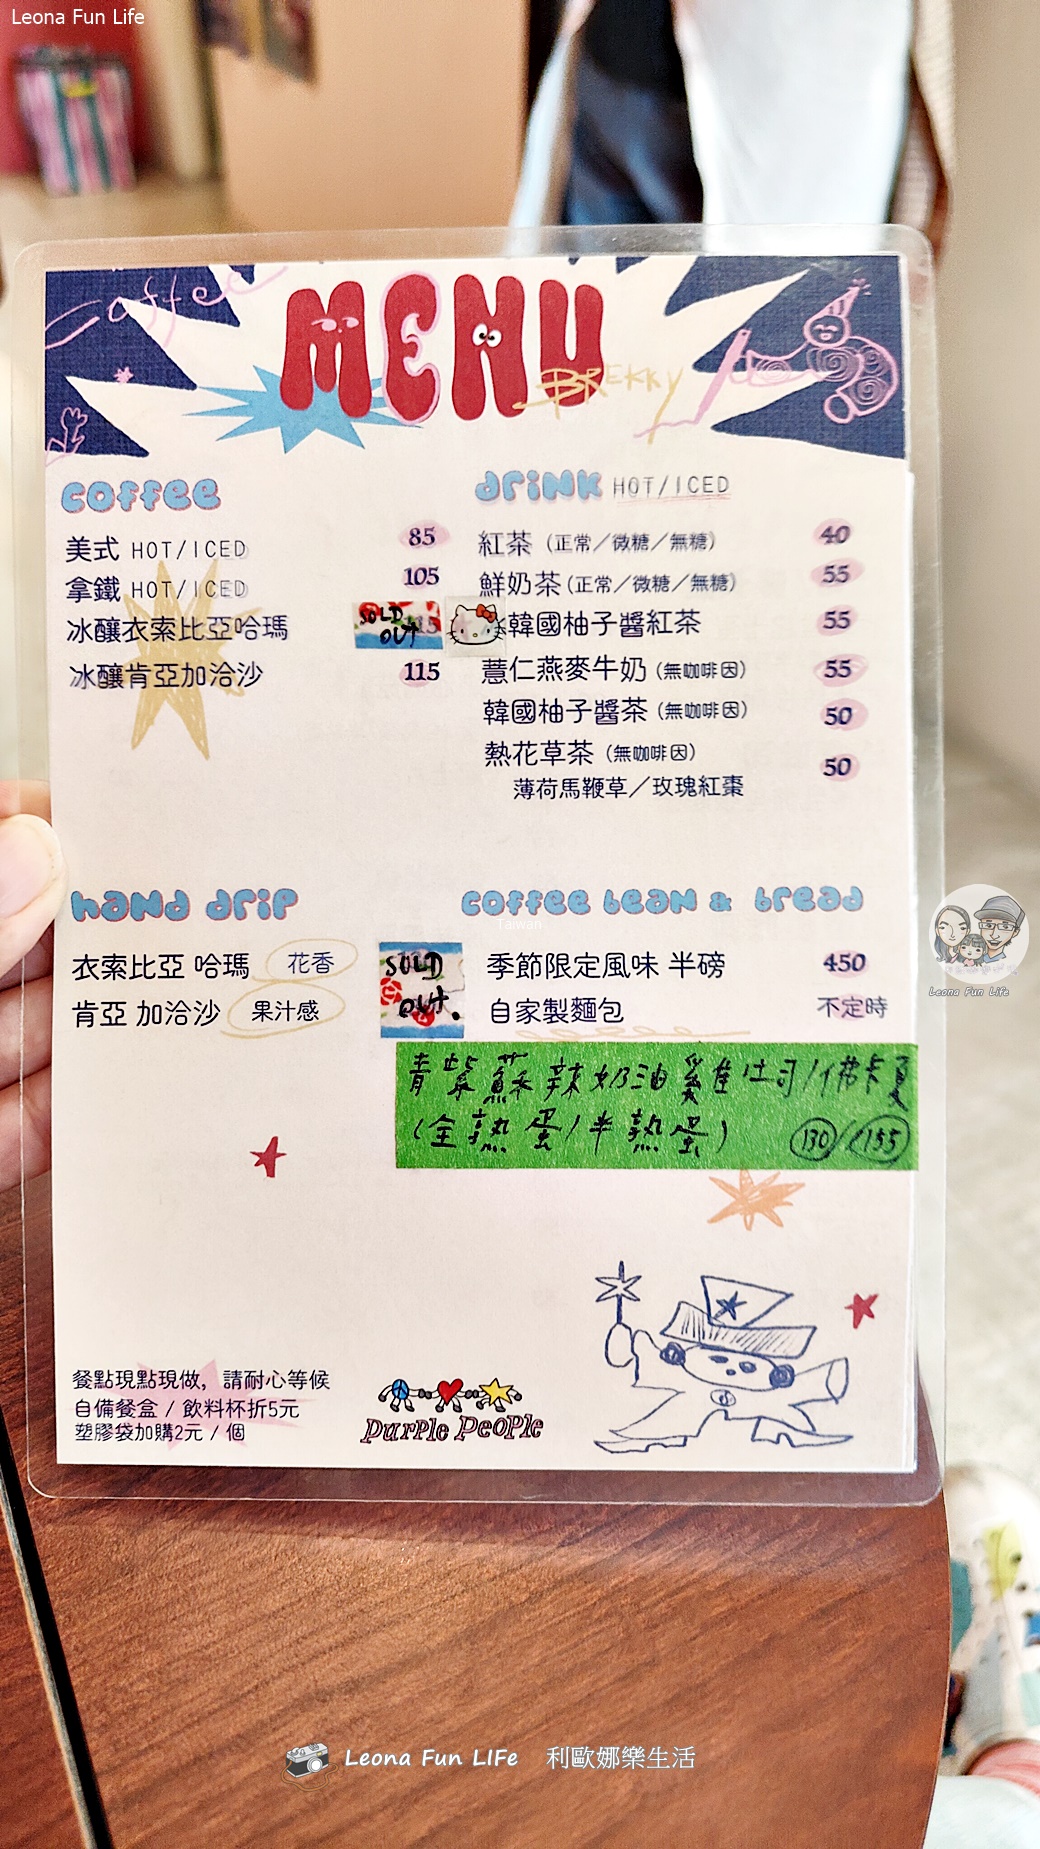 Leona Fun Life
coffee
MENU
BREKKY
coffee
美式 HOT/ICED 85
拿鐵 HOT/ICED 105
冰釀衣索比亞哈瑪 SOLD OUT
冰釀肯亞加洽沙 115
drink HOT/ICED
紅茶 (正常/微糖/無糖) 40
鮮奶茶(正常/微糖/無糖) 55
韓國柚子醬紅茶 55
薏仁燕麥牛奶 (無咖啡因) 55
韓國柚子醬茶 (無咖啡因) 50
熱花草茶 (無咖啡因) 50
薄荷馬鞭草/玫瑰紅棗
hand drip
衣索比亞 哈瑪 花香
肯亞 加洽沙 果汁感
SOLD
OUT.
coffee bean & bread
Taiwan
季節限定風味 半磅 450
自家製麵包 不定時
青紫蘇辣奶油雞吐司/佛卡夏
(全熟蛋/半熟蛋) 130/155
餐點現點現做, 請耐心等候
自備餐盒 / 飲料杯折5元
塑膠袋加購2元 / 個
Purple People
Leona Fun Life
Leona Fun LIfe 利歐娜樂生活